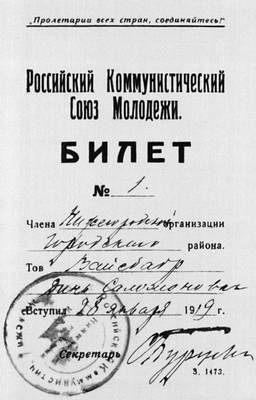 „Пролетарии всех стран, соединяйтесь!“
Российский Коммунистический
Союз Молодежи.
БИЛЕТ
№ 1.
Члена Нижегородской организации
Городского района.
Тов Вайсборд
Дина Соломоновна
Вступил 28 января 1919 г.
Секретарь
З. 1473.